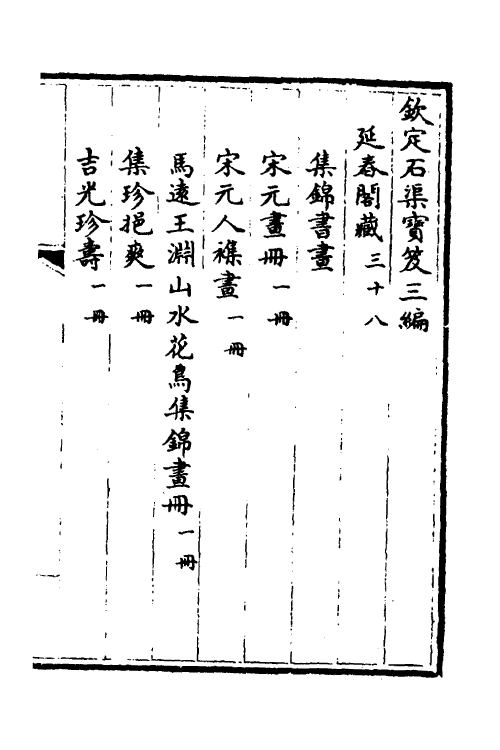 欽定石渠寶笈三編
延春閣藏 三十八
集錦書畫
宋元畫冊 一冊
宋元人襍畫 一冊
馬遠王淵山水花鳥集錦畫冊 一冊
集珍挹爽 一冊
吉光珍壽 一冊